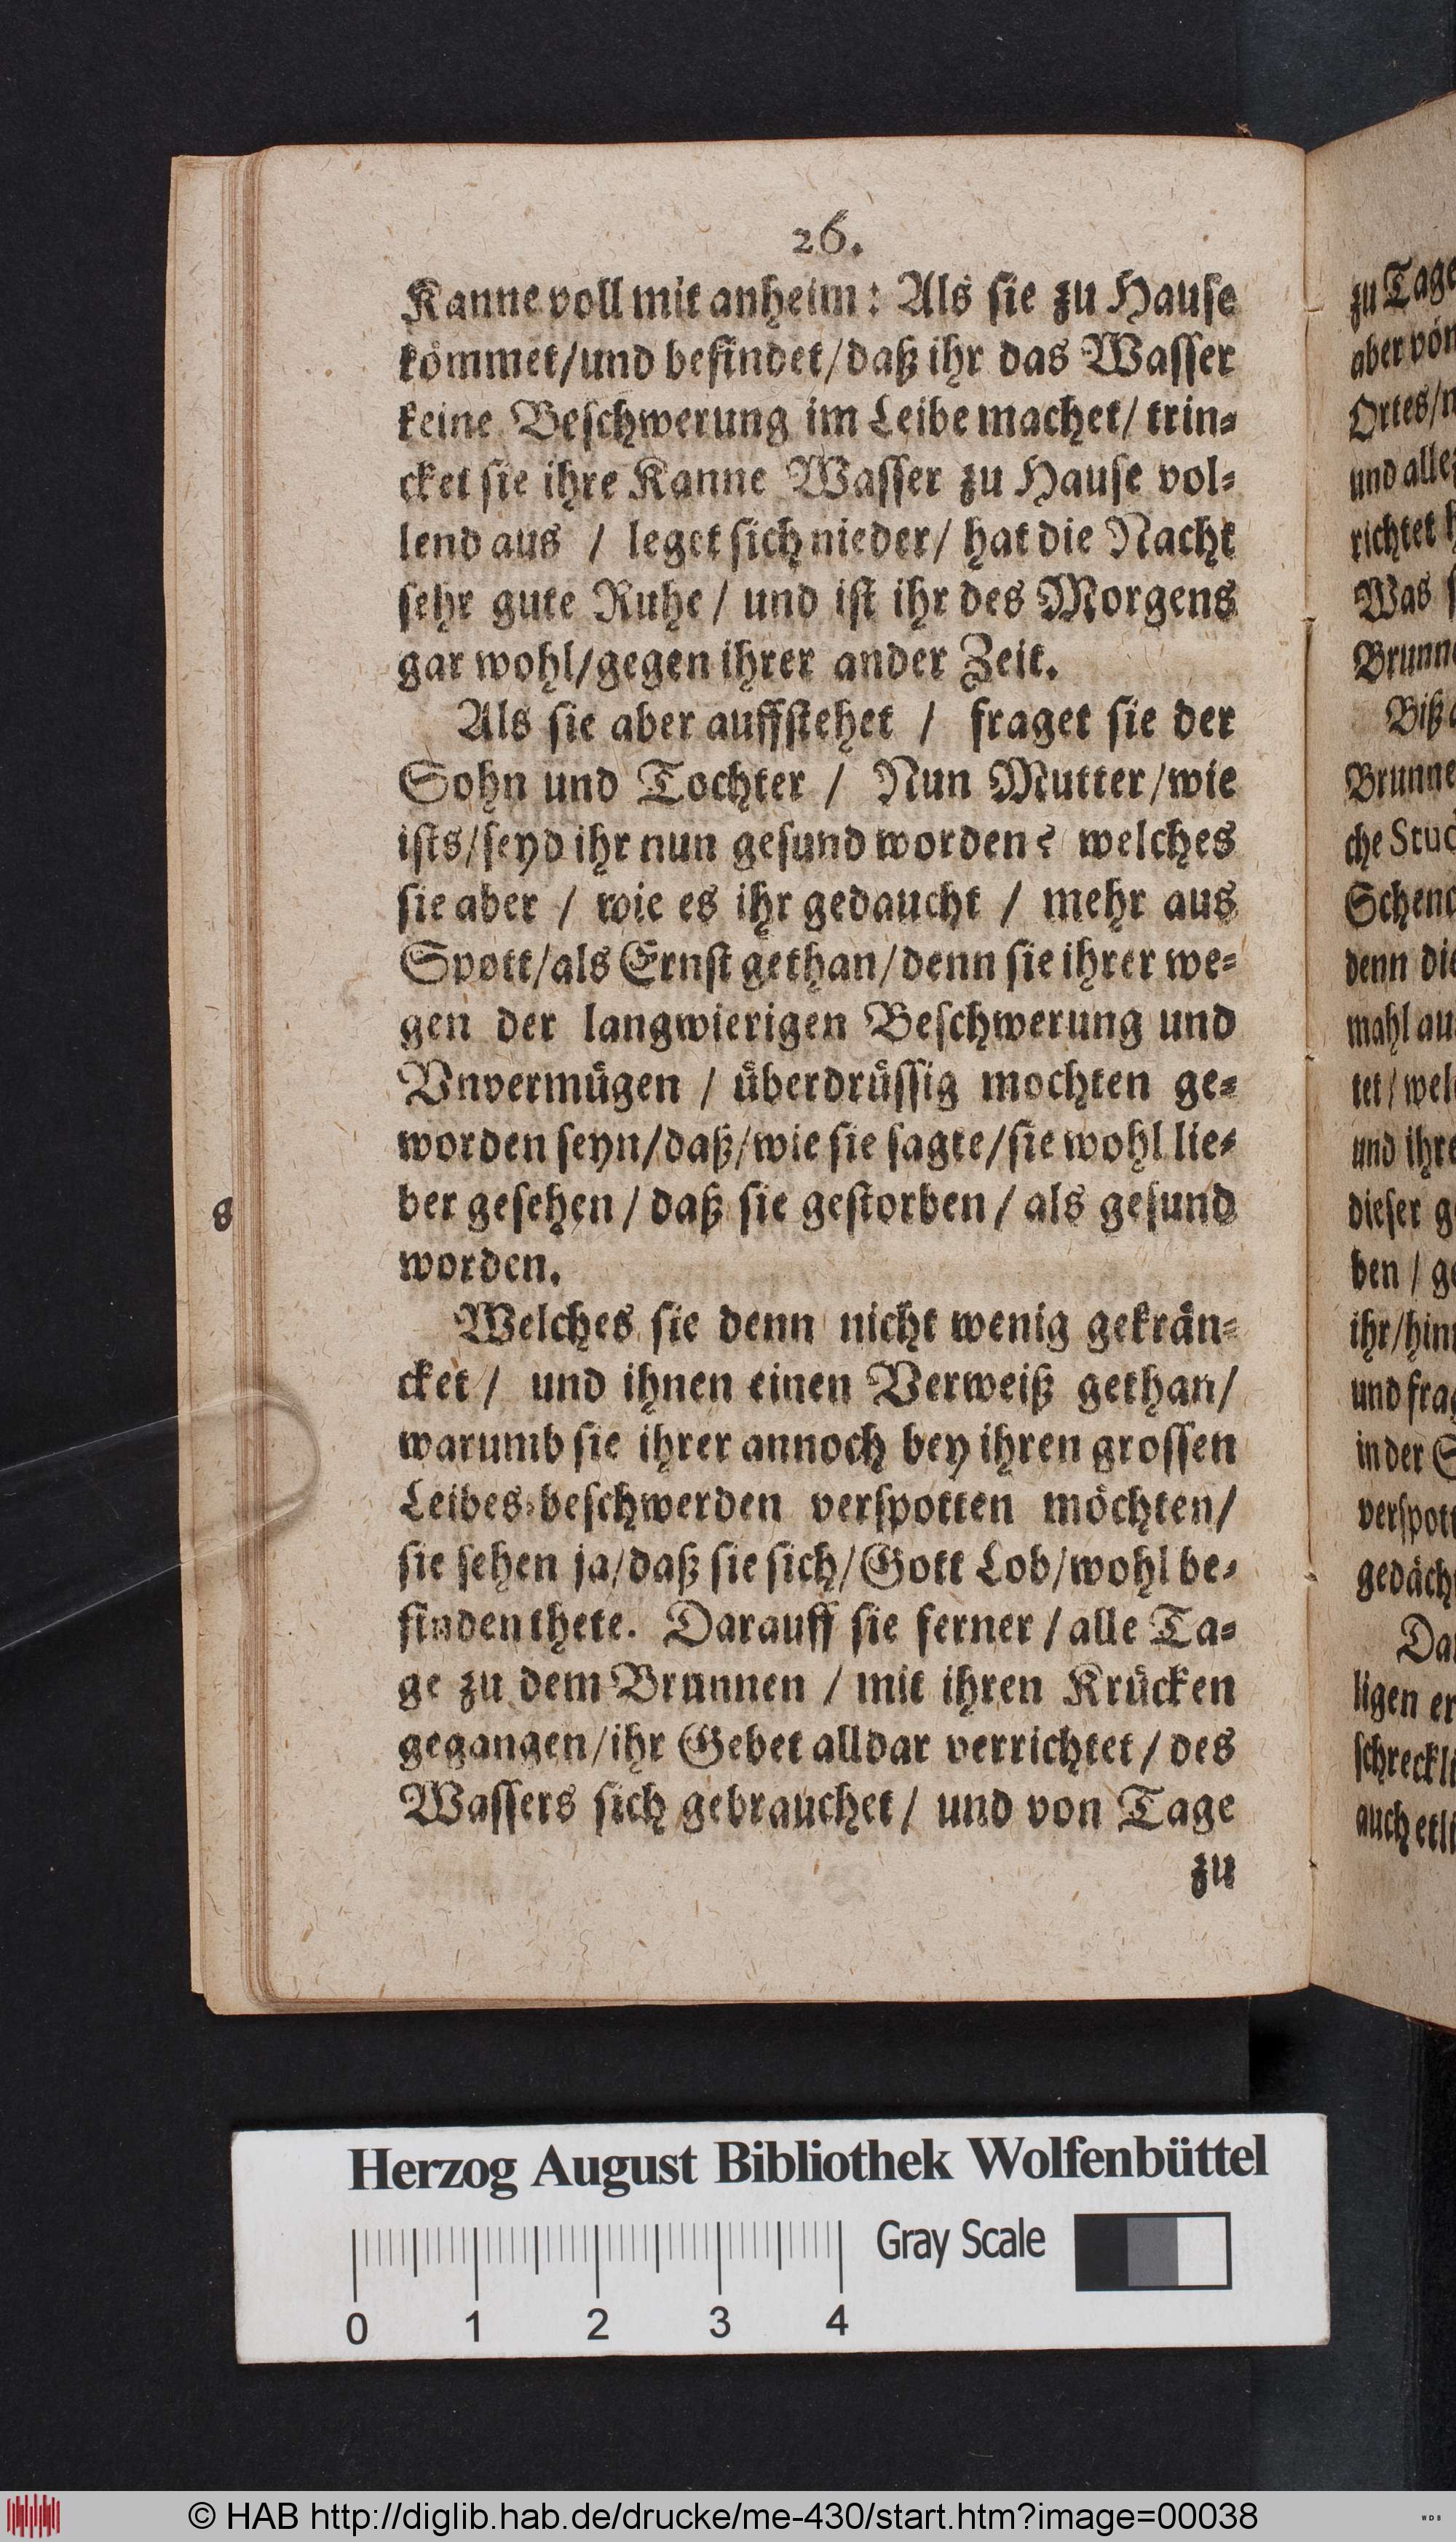 26.
Kanne voll mit anheim: Als sie zu Hause
kömmet/und befindet/daß ihr das Wasser
keine Beschwerung im Leibe machet/ trin-
cket sie ihre Kanne Wasser zu Hause vol-
lend aus / leget sich nieder/ hat die Nacht
sehr gute Ruhe / und ist ihr des Morgens
gar wohl/gegen ihrer ander Zeit.
Als sie aber auffstehet / fraget sie der
Sohn und Tochter / Nun Mutter/wie
ists/seyd ihr nun gesund worden? welches
sie aber / wie es ihr gedaucht / mehr aus
Spott/als Ernst gethan/denn sie ihrer we-
gen der langwierigen Beschwerung und
Vnvermügen / überdrüssig mochten ge-
worden seyn/daß/wie sie sagte/sie wohl lie-
ber gesehen / daß sie gestorben / als gesund
worden.
Welches sie denn nicht wenig gekrän-
cket / und ihnen einen Verweiß gethan/
warumb sie ihrer annoch bey ihren grossen
Leibes-beschwerden verspotten möchten/
sie sehen ja/daß sie sich/Gott Lob/wohl be-
finden thete. Darauff sie ferner / alle Ta-
ge zu dem Brunnen / mit ihren Krücken
gegangen/ihr Gebet alldar verrichtet / des
Wassers sich gebrauchet / und von Tage
zu
8
zu Tage
aber von
Ortes/
und alle
richtet
Was
Brunn
Biß
Brunne
che Stuc
Schenc
denn die
mahl au
tet / wel
und ihre
dieser g
ben / ge
ihr/hin
und frag
in der S
verspott
gedäch
Da
ligen er
schreckli
auch etli
Herzog August Bibliothek Wolfenbüttel
Gray Scale
0 1 2 3 4
© HAB http://diglib.hab.de/drucke/me-430/start.htm?image=00038
WDB